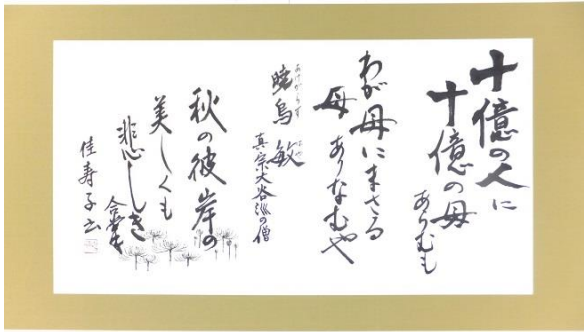 十億の人に
十億の母
あらむも
わが母にまさる
母ありなむや
暁烏敏
あけがらす はや
真宗大谷派の僧
秋の彼岸の
美しくも
悲しき
合掌
佳寿子書